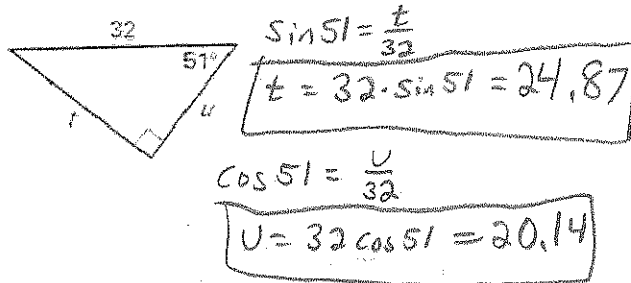 32
51°
t
u
sin 51 = t/32
t = 32 · sin 51 = 24.87
cos 51 = u/32
u = 32 cos 51 = 20.14